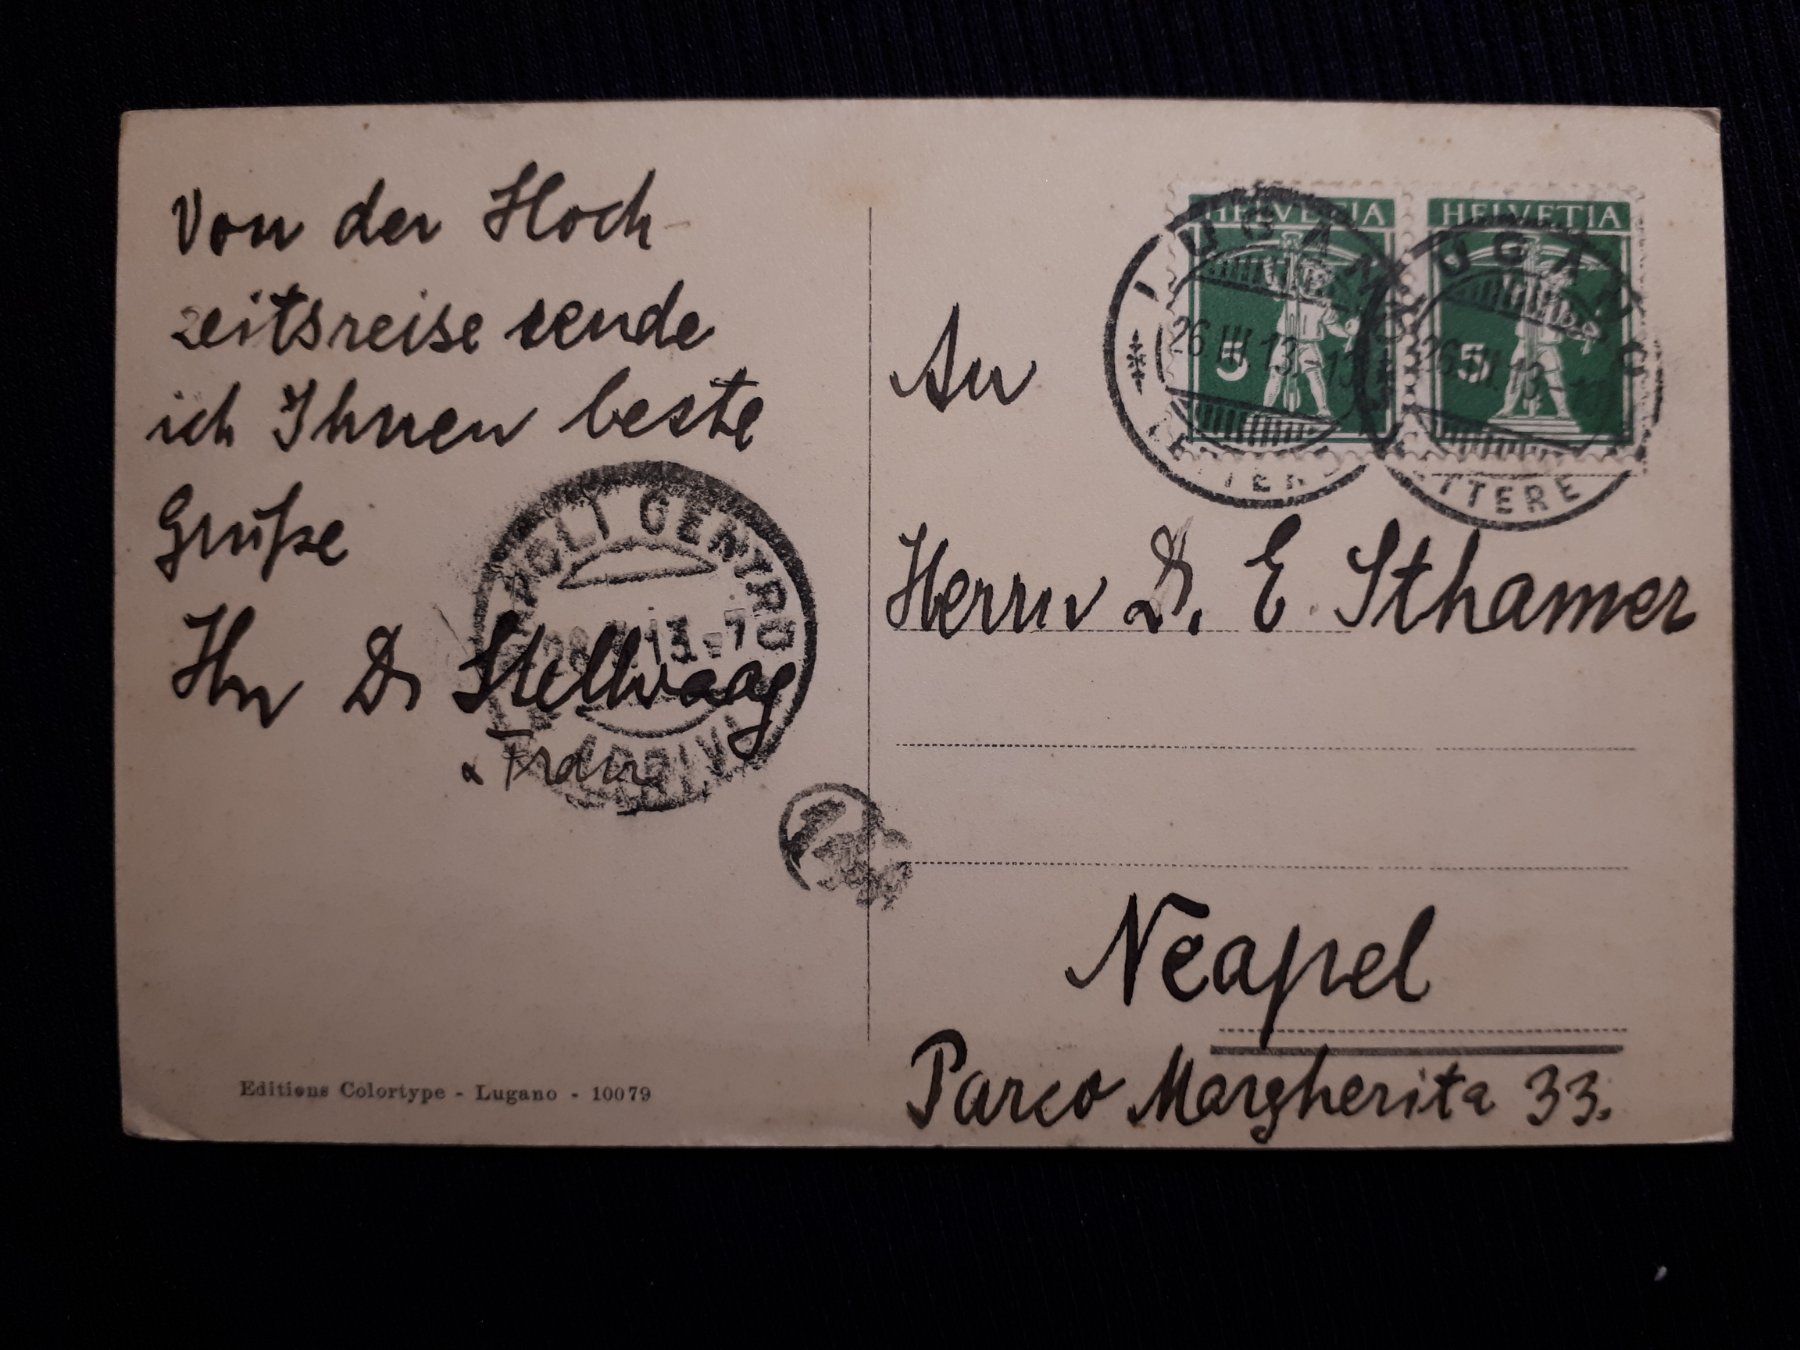 Von der Hoch
zeitsreise sende
ich Ihnen beste
Grüße
Ihr Dr Stellwaag
u. Frau
NAPOLI CENTRO
13
ARRIVI
Editions Colortype - Lugano - 10079
HELVETIA HELVETIA
5 5
LUGANO LUGANO
26 III 13 26 III 13
LETTERE LETTERE
An
Herrn Dr. E. Sthamer
Neapel
Parco Margherita 33.